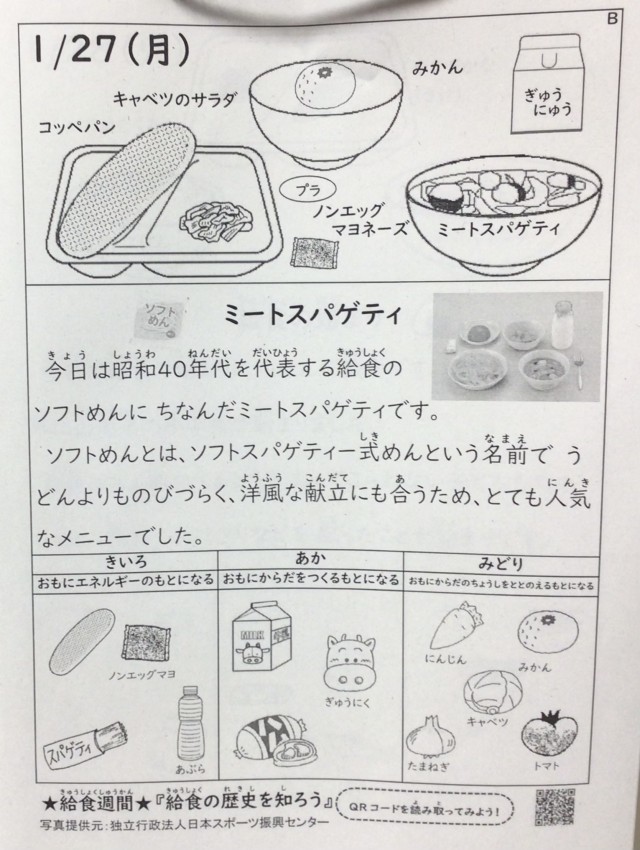 B
1/27(月)
みかん
キャベツのサラダ
ぎゅう
にゅう
コッペパン
プラ
ノンエッグ
マヨネーズ
ミートスパゲティ
ソフト
めん
ミートスパゲティ
きょう しょうわ ねんだい だいひょう きゅうしょく
今日は昭和40年代を代表する給食の
ソフトめんに ちなんだミートスパゲティです。
しき なまえ
ソフトめんとは、ソフトスパゲティー式めんという名前で う
ようふう こんだて あ にんき
どんよりものびづらく、洋風な献立にも合うため、とても人気
なメニューでした。
きいろ あか みどり
おもにエネルギーのもとになる おもにからだをつくるもとになる おもにからだのちょうしをととのえるもとになる
MILK
にんじん
みかん
ノンエッグマヨ
ぎゅうにく
キャベツ
スパゲティ
あぶら
たまねぎ
トマト
きゅうしょくしゅうかん きゅうしょく れきし し
★給食週間★『給食の歴史を知ろう』
よ と
QRコードを読み取ってみよう!
写真提供元:独立行政法人日本スポーツ振興センター